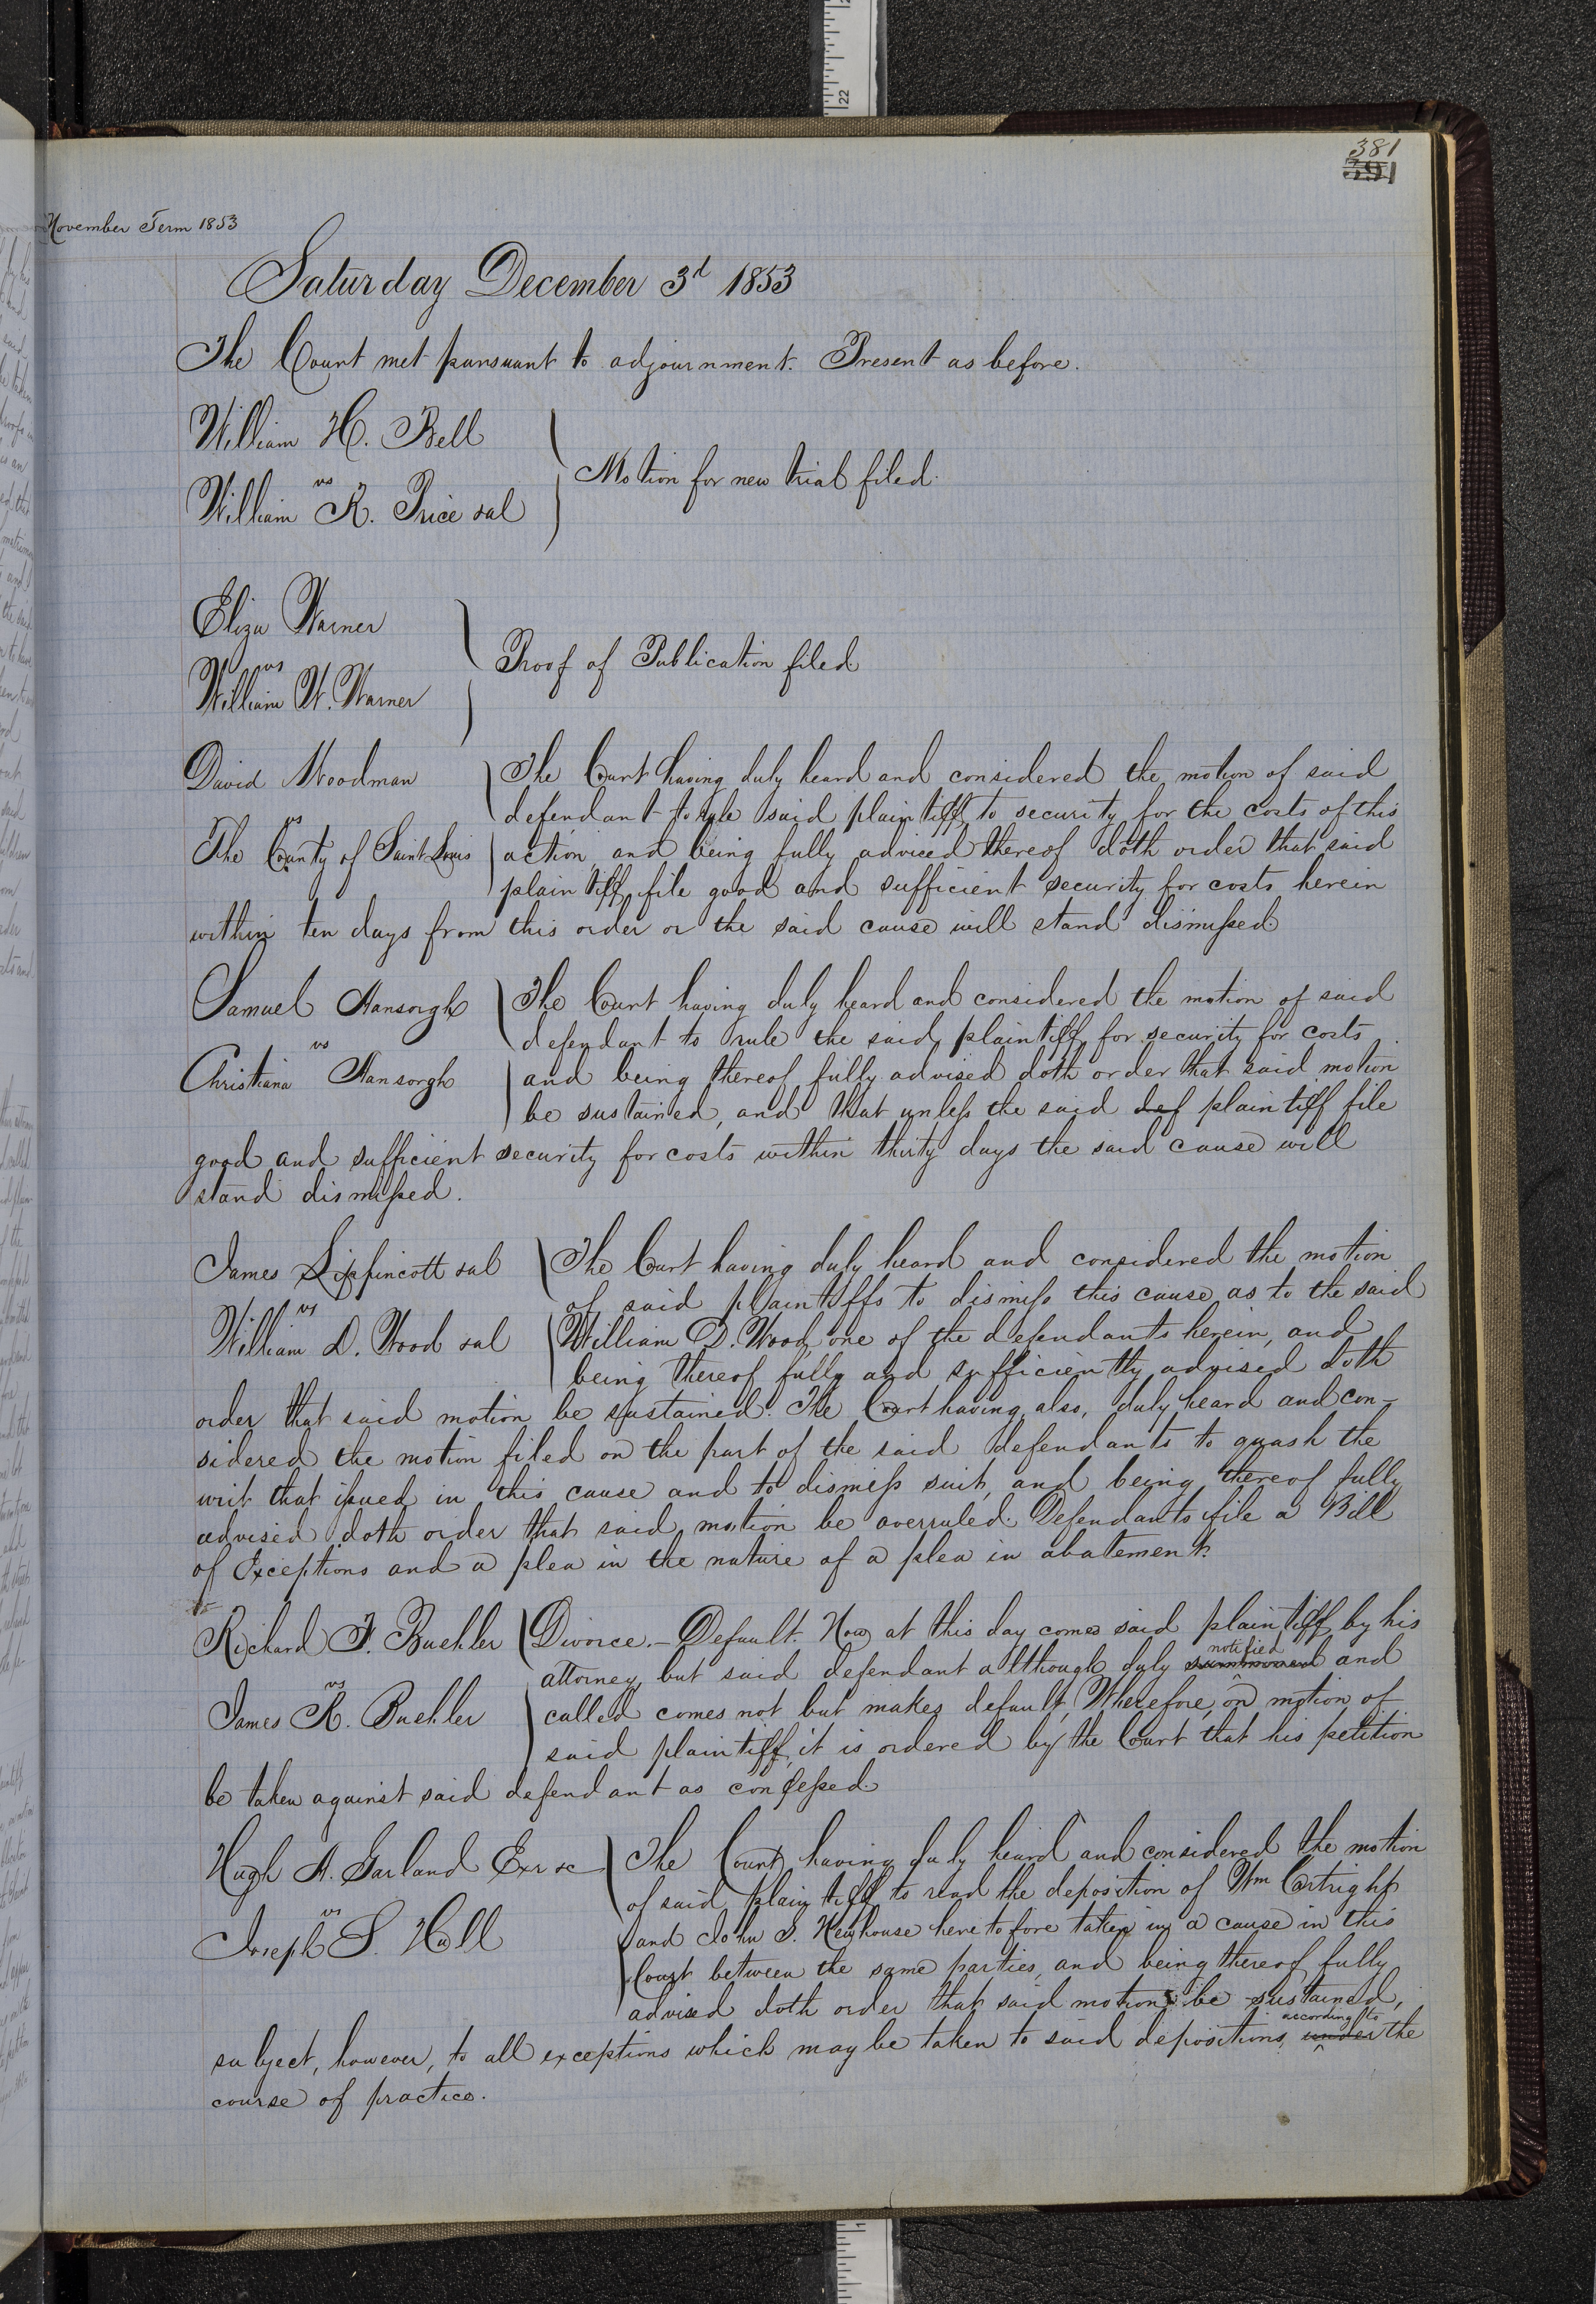 381
391
November Term 1853
Saturday December 3d 1853
The Court met pursuant to adjournment. Present as before.
William H. Bell
vs
William R. Price et al
Motion for new trial filed.
Eliza Warner
vs
William W. Warner
Proof of Publication filed
David Woodman
vs
The County of Saint Louis
The Court having duly heard and considered the motion of said
defendant to rule said plaintiff to security for the costs of this
action, and being fully adviced thereof doth order that said
plaintiff file good and sufficient security for costs herein
within ten days from this order or the said cause will stand dismissed.
Samuel Hansorgh
vs
Christiana Hansorgh
The Court having duly heard and considered the motion of said
defendant to rule the said plaintiff for security for costs
and being thereof fully advised doth order that said motion
be sustained, and that unless the said def plaintiff file
good and sufficient security for costs within thirty days the said cause will
stand dismissed.
James Lippincott et al
vs
William D. Wood et al
The Court having duly heard and considered the motion
of said plaintiffs to dismiss this cause as to the said
William D. Wood, one of the defendants herein, and
being thereof fully and sufficiently advised doth
order that said motion be sustained. The Court having also, duly heard and con-
sidered the motion filed on the part of the said defendants to quash the
writ that issued in this cause and to dismiss suit, and being thereof fully
advised doth order that said motion be overruled. Defendants file a Bill
of Exceptions and a plea in the nature of a plea in abatement.
Richard F. Buehler
vs
James R. Buehler
Divorce.- Default. Now at this day comes said plaintiff by his
notified
attorney, but said defendant although duly summoned and
called comes not but makes default, Wherefore, on motion of
said plaintiff, it is ordered by the Court that his petition
be taken against said defendant as confessed.
Hugh A. Garland Exr &c
vs
Joseph S. Hull
The Court having duly heard and considered the motion
of said plaintiff to read the deposition of Wm Cartright
and John S. Newhouse heretofore taken in a cause in this
Court between the same parties, and being thereof fully
advised doth order that said motion be sustained,
according to
subject, however, to all exceptions which may be taken to said depositions, under the
course of practice.